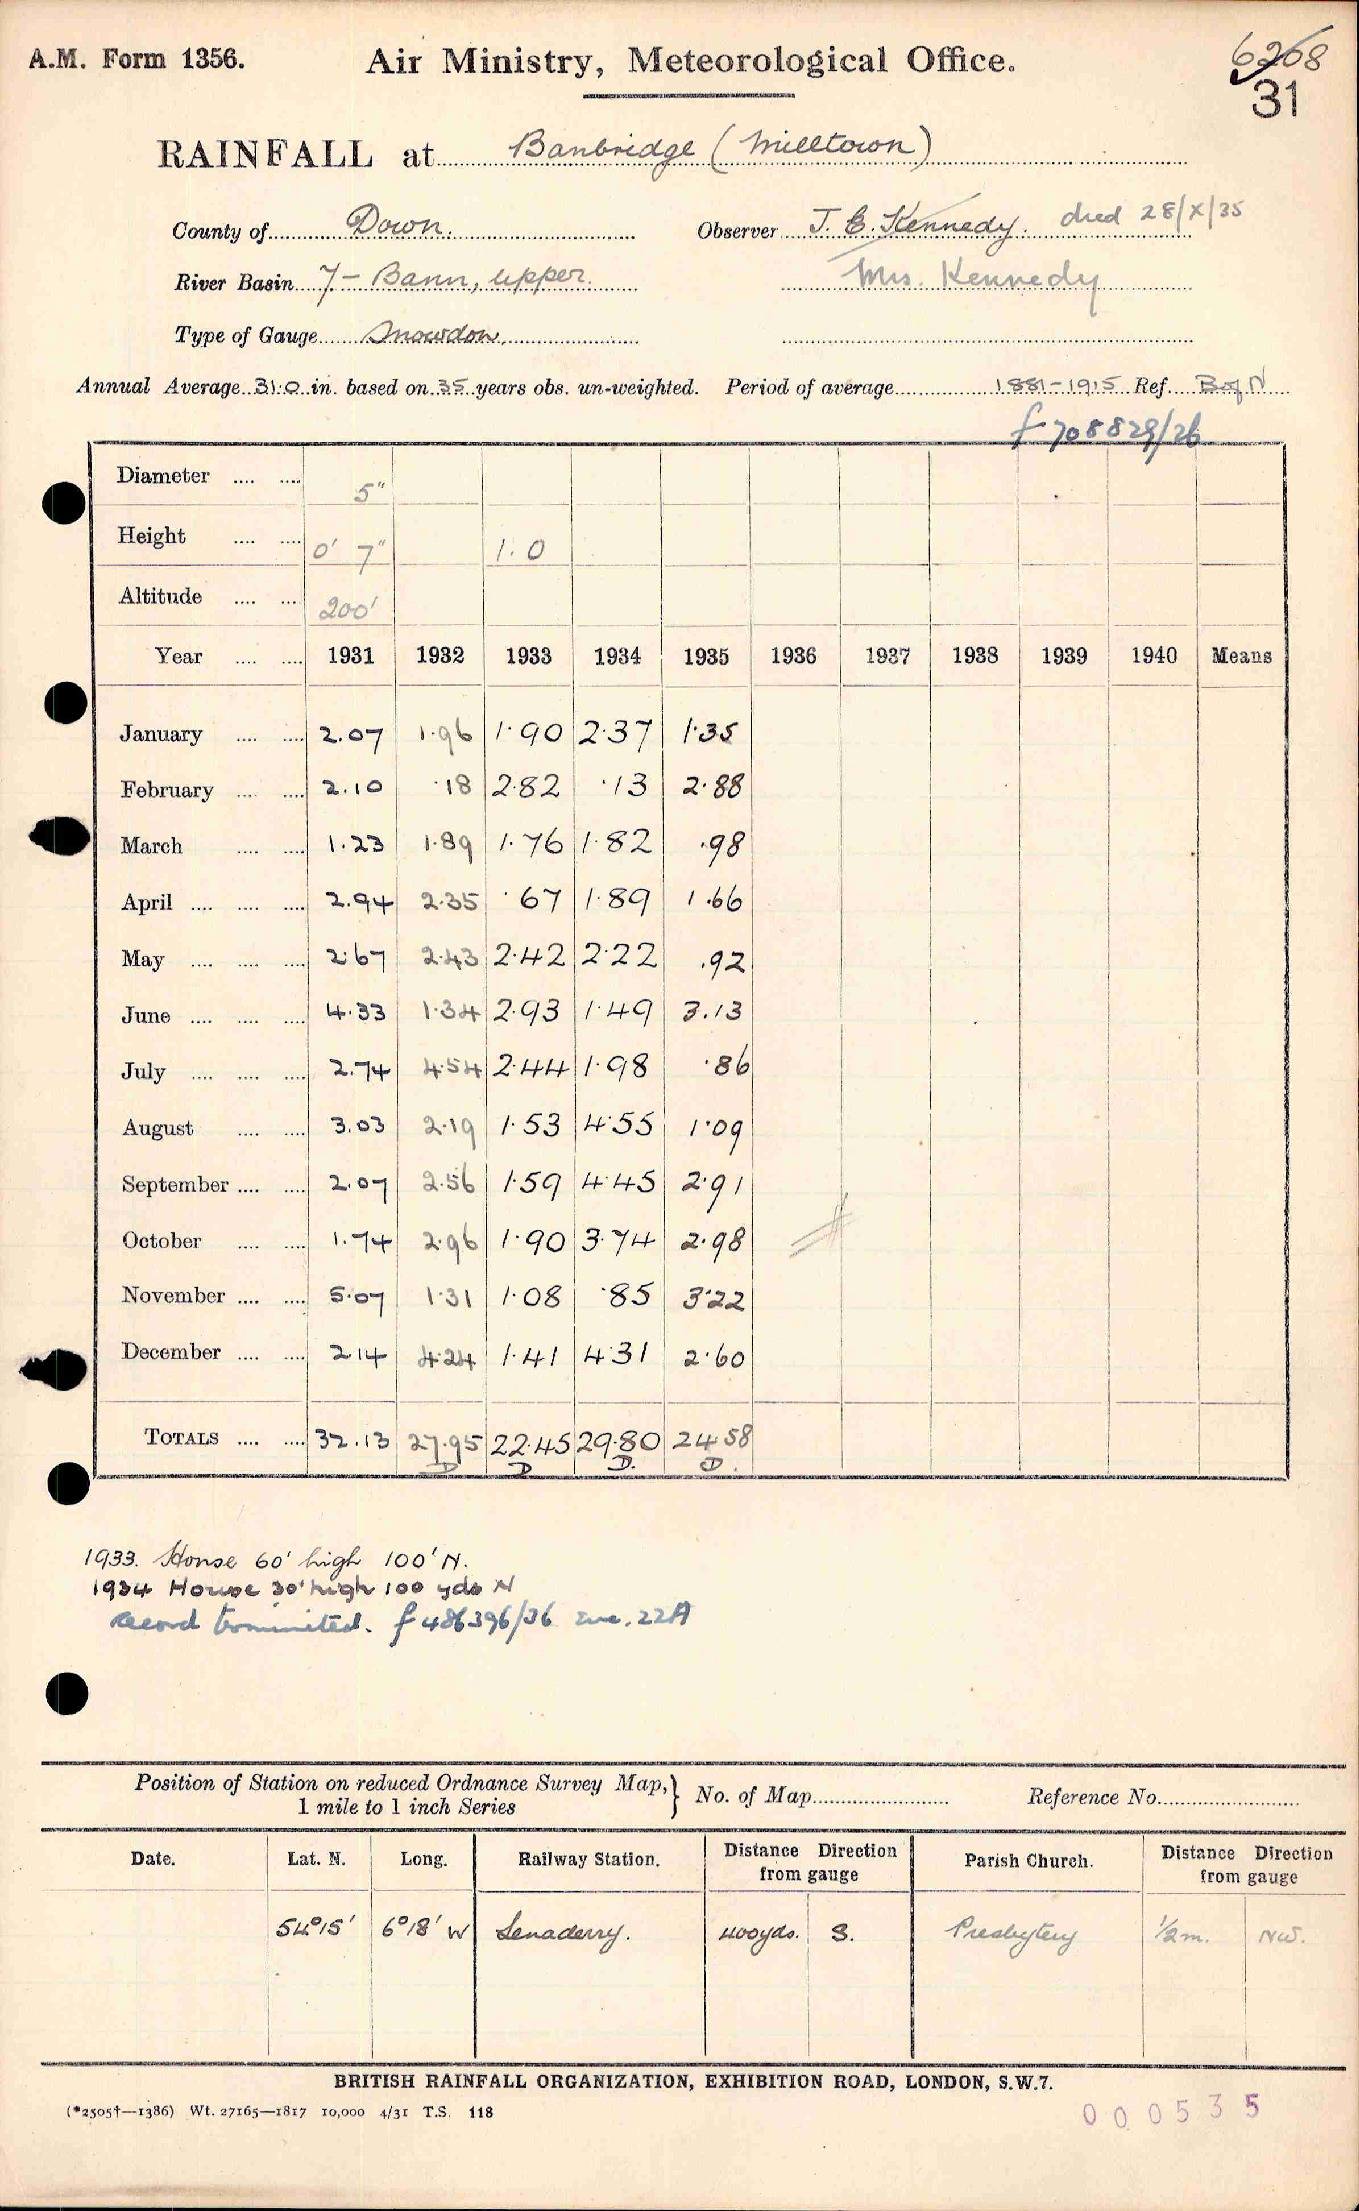 A.M. Form 1356. Air Ministry, Meteorological Office. 6208
31
RAINFALL at Banbridge (Milltown)
County of Down. Observer J. E. Kennedy. died 28/X/35
River Basin 7 – Bann, upper. Mrs. Kennedy
Type of Gauge Snowdon.
Annual Average 31.0 in. based on 35 years obs. un-weighted. Period of average 1881–1915 Ref. B of N
f 708829/26
Diameter .... .... 5"
Height .... .... 0' 7" 1.0
Altitude .... .... 200'
Year .... .... 1931 1932 1933 1934 1935 1936 1937 1938 1939 1940 Means
January .... .... 2.07 1.96 1.90 2.37 1.35
February .... .... 2.10 .18 2.82 .13 2.88
March .... .... 1.23 1.89 1.76 1.82 .98
April .... .... .... 2.94 2.35 .67 1.89 1.66
May .... .... .... 2.67 2.43 2.42 2.22 .92
June .... .... .... 4.33 1.34 2.93 1.49 3.13
July .... .... .... 2.74 4.54 2.44 1.98 .86
August .... .... 3.03 2.19 1.53 4.55 1.09
September .... .... 2.07 2.56 1.59 4.45 2.91
October .... .... 1.74 2.96 1.90 3.74 2.98
November .... .... 5.07 1.31 1.08 .85 3.22
December .... .... 2.14 4.24 1.41 4.31 2.60
TOTALS .... .... 32.13 27.95 22.45 29.80 24.58
D D D. D.
1933. House 60' high 100' N.
1934 House 30' high 100 yds N
Record terminated. f 486396/36 enc. 22A
Position of Station on reduced Ordnance Survey Map,} No. of Map Reference No.
1 mile to 1 inch Series
Date. Lat. N. Long. Railway Station. Distance Direction from gauge Parish Church. Distance Direction from gauge
54°15' 6°18' W Lenaderry. 400yds. S. Presbytery ½m. NW.
BRITISH RAINFALL ORGANIZATION, EXHIBITION ROAD, LONDON, S.W.7.
(*2505†—1386) Wt. 27165—1817 10,000 4/31 T.S. 118
000535